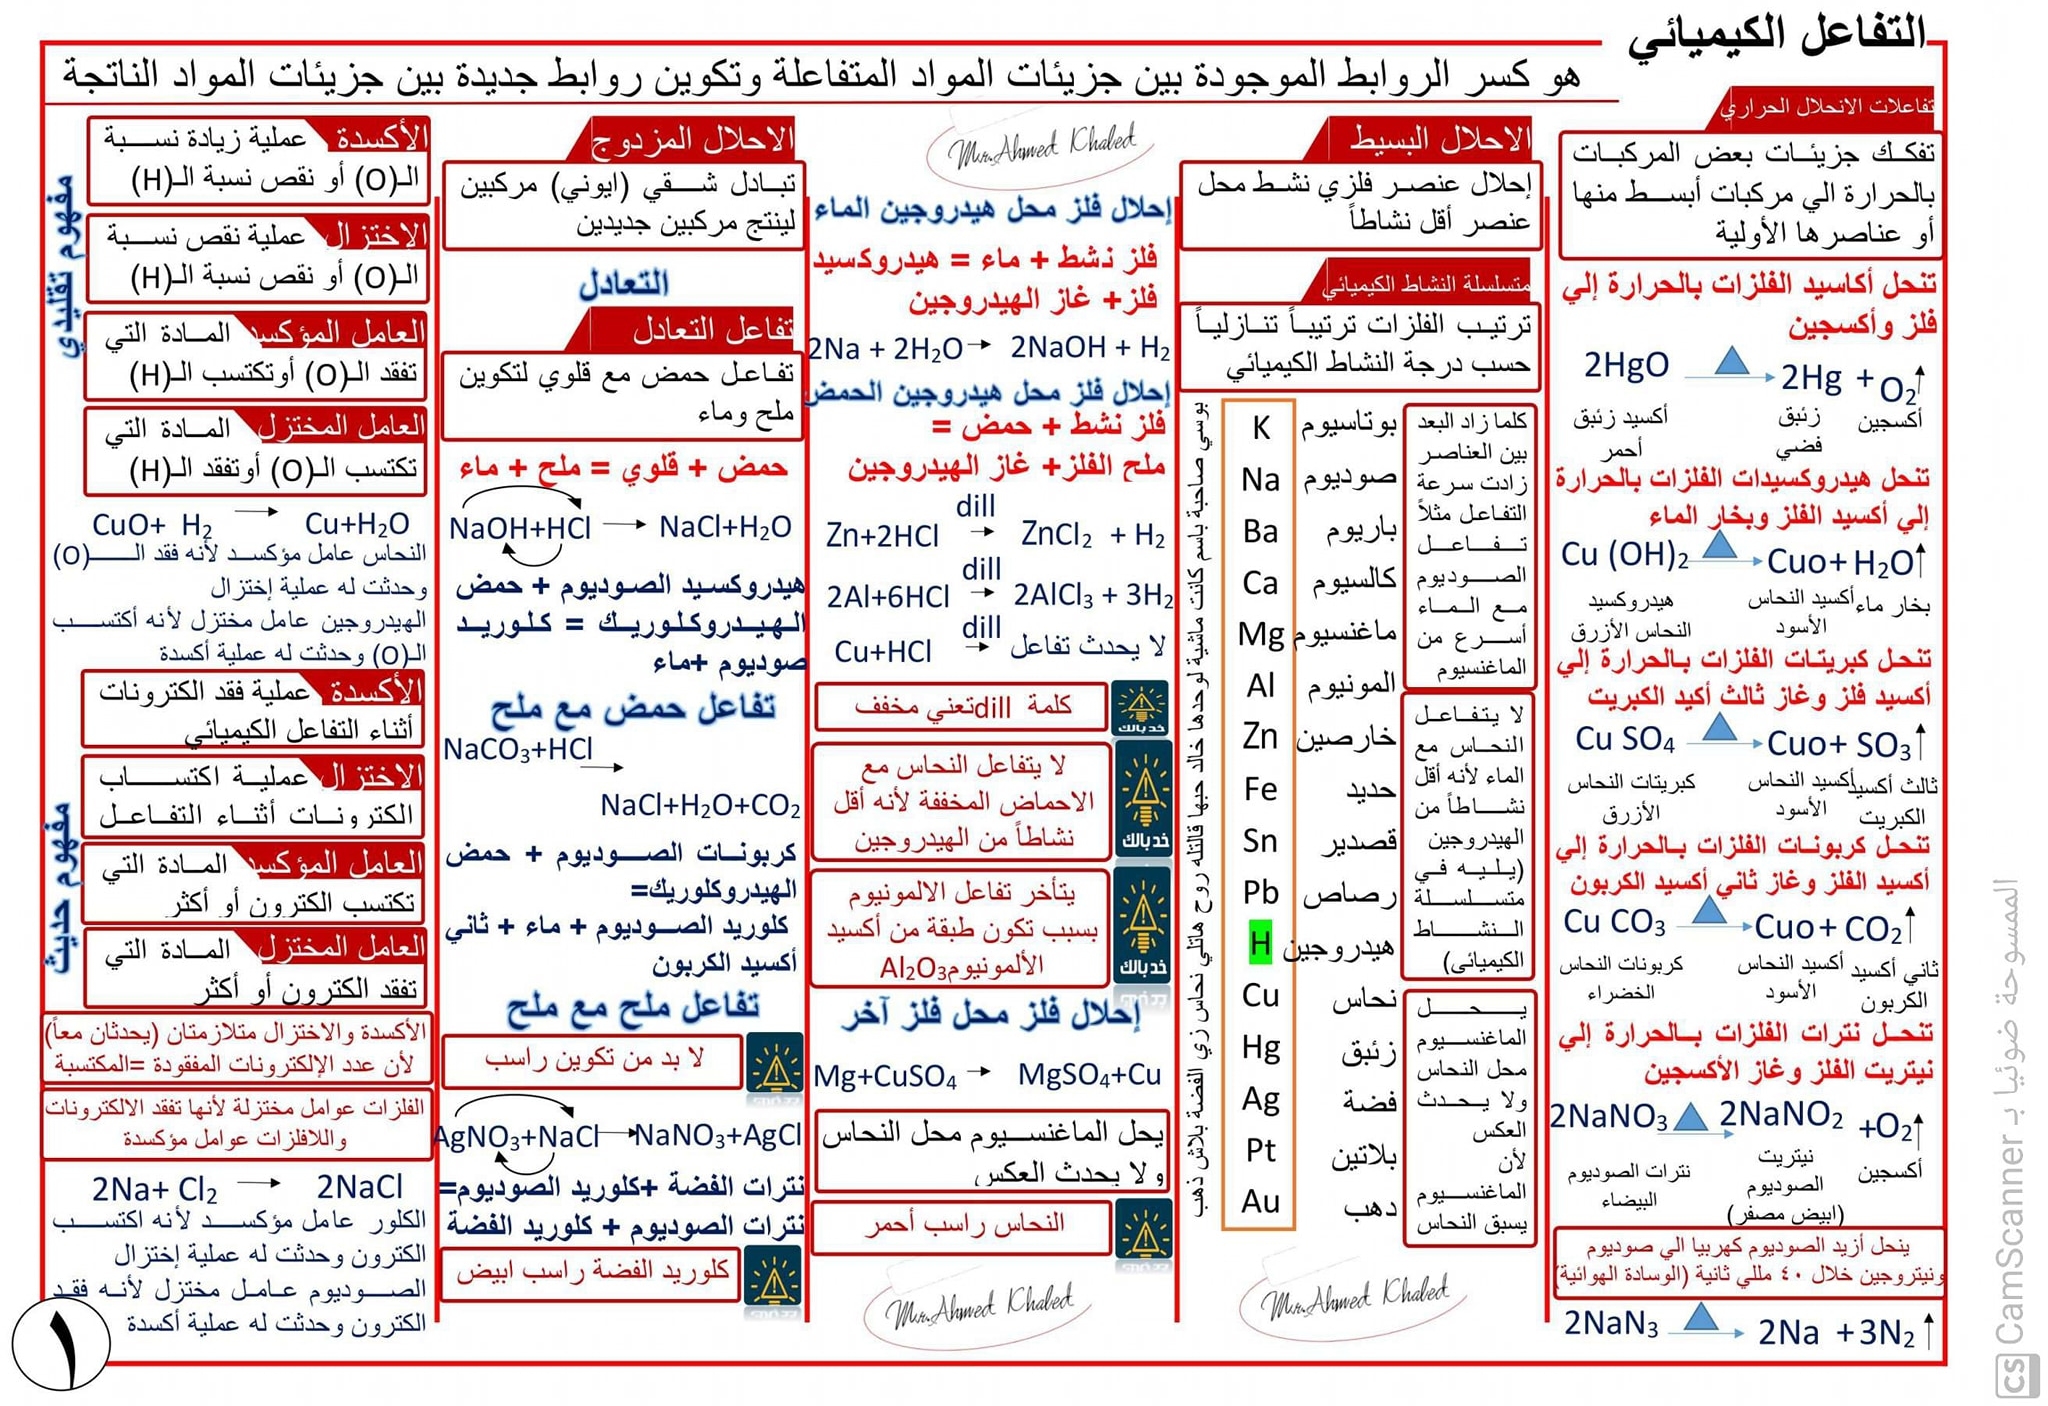 التفاعل الكيميائي
هو كسر الروابط الموجودة بين جزيئات المواد المتفاعلة وتكوين روابط جديدة بين جزيئات المواد الناتجة
تفاعلات الانحلال الحراري
تفكك جزيئات بعض المركبات
بالحرارة الي مركبات أبسط منها
أو عناصرها الأولية
تنحل أكاسيد الفلزات بالحرارة إلي
فلز وأكسجين
2HgO → 2Hg + O₂↑
أكسيد زئبق زئبق أكسجين
أحمر فضي
تنحل هيدروكسيدات الفلزات بالحرارة
إلي أكسيد الفلز وبخار الماء
Cu (OH)₂ → Cuo+ H₂O↑
هيدروكسيد أكسيد النحاس بخار ماء
النحاس الأزرق الأسود
تنحل كبريتات الفلزات بالحرارة إلي
أكسيد فلز وغاز ثالث أكيد الكبريت
Cu SO₄ → Cuo+ SO₃↑
كبريتات النحاس أكسيد النحاس ثالث أكسيد
الأزرق الأسود الكبريت
تنحل كربونات الفلزات بالحرارة إلي
أكسيد الفلز وغاز ثاني أكسيد الكربون
Cu CO₃ → Cuo+ CO₂↑
كربونات النحاس أكسيد النحاس ثاني أكسيد
الخضراء الأسود الكربون
تنحل نترات الفلزات بالحرارة إلي
نيتريت الفلز وغاز الأكسجين
2NaNO₃ → 2NaNO₂ +O₂↑
نترات الصوديوم نيتريت أكسجين
البيضاء الصوديوم
(ابيض مصفر)
ينحل أزيد الصوديوم كهربيا الي صوديوم
ونيتروجين خلال ٤٠ مللي ثانية (الوسادة الهوائية)
2NaN₃ → 2Na +3N₂↑
الاحلال البسيط
إحلال عنصر فلزي نشط محل
عنصر أقل نشاطاً
متسلسلة النشاط الكيميائي
ترتيب الفلزات ترتيباً تنازلياً
حسب درجة النشاط الكيميائي
كلما زاد البعد
بين العناصر
زادت سرعة
التفاعل مثلاً
تفاعل
الصوديوم
مع الماء
أسرع من
الماغنسيوم
لا يتفاعل
النحاس مع
الماء لأنه أقل
نشاطاً من
الهيدروجين
(يليه في
متسلسلة
النشاط
الكيميائى)
يحل
الماغنسيوم
محل النحاس
ولا يحدث
العكس
لأن
الماغنسيوم
يسبق النحاس
بوتاسيوم K
صوديوم Na
باريوم Ba
كالسيوم Ca
ماغنسيوم Mg
المونيوم Al
خارصين Zn
حديد Fe
قصدير Sn
رصاص Pb
هيدروجين H
نحاس Cu
زئبق Hg
فضة Ag
بلاتين Pt
دهب Au
بوسي صاحبة باسم كانت ماشية لوحدها خالد حبها قالتله روح هاتلي نحاس زي الفضة بلاش ذهب
Mr.Ahmed Khaled
Mr.Ahmed Khaled
إحلال فلز محل هيدروجين الماء
فلز نشط + ماء = هيدروكسيد
فلز+ غاز الهيدروجين
2Na + 2H₂O → 2NaOH + H₂
إحلال فلز محل هيدروجين الحمض
فلز نشط + حمض =
ملح الفلز+ غاز الهيدروجين
dill
Zn+2HCl → ZnCl₂ + H₂
dill
2Al+6HCl → 2AlCl₃ + 3H₂
dill
Cu+HCl → لا يحدث تفاعل
كلمة dill تعني مخفف
خد بالك
لا يتفاعل النحاس مع
الاحماض المخففة لأنه أقل
نشاطاً من الهيدروجين
خد بالك
يتأخر تفاعل الالمونيوم
بسبب تكون طبقة من أكسيد
الألمونيوم Al₂O₃
خد بالك
إحلال فلز محل فلز آخر
Mg+CuSO₄ → MgSO₄+Cu
يحل الماغنسيوم محل النحاس
ولا يحدث العكس
النحاس راسب أحمر
Mr.Ahmed Khaled
الاحلال المزدوج
تبادل شقي (ايوني) مركبين
لينتج مركبين جديدين
التعادل
تفاعل التعادل
تفاعل حمض مع قلوي لتكوين
ملح وماء
حمض + قلوي = ملح + ماء
NaOH+HCl → NaCl+H₂O
هيدروكسيد الصوديوم + حمض
الهيدروكلوريك = كلوريد
صوديوم +ماء
تفاعل حمض مع ملح
NaCO₃+HCl →
NaCl+H₂O+CO₂
كربونات الصوديوم + حمض
الهيدروكلوريك=
كلوريد الصوديوم + ماء + ثاني
أكسيد الكربون
تفاعل ملح مع ملح
لا بد من تكوين راسب
AgNO₃+NaCl → NaNO₃+AgCl
نترات الفضة +كلوريد الصوديوم=
نترات الصوديوم + كلوريد الفضة
كلوريد الفضة راسب ابيض
مفهوم تقليدي
الأكسدة عملية زيادة نسبة
الـ(O) أو نقص نسبة الـ(H)
الاختزال عملية نقص نسبة
الـ(O) أو نقص نسبة الـ(H)
العامل المؤكسد المادة التي
تفقد الـ(O) أوتكتسب الـ(H)
العامل المختزل المادة التي
تكتسب الـ(O) أوتفقد الـ(H)
CuO+ H₂ → Cu+H₂O
النحاس عامل مؤكسد لأنه فقد الـ(O)
وحدثت له عملية إختزال
الهيدروجين عامل مختزل لأنه أكتسب
الـ(O) وحدثت له عملية أكسدة
مفهوم حديث
الأكسدة عملية فقد الكترونات
أثناء التفاعل الكيميائي
الاختزال عملية اكتساب
الكترونات أثناء التفاعل
العامل المؤكسد المادة التي
تكتسب الكترون أو أكثر
العامل المختزل المادة التي
تفقد الكترون أو أكثر
الأكسدة والاختزال متلازمتان (يحدثان معاً)
لأن عدد الإلكترونات المفقودة =المكتسبة
الفلزات عوامل مختزلة لأنها تفقد الالكترونات
واللافلزات عوامل مؤكسدة
2Na+ Cl₂ → 2NaCl
الكلور عامل مؤكسد لأنه اكتسب
الكترون وحدثت له عملية إختزال
الصوديوم عامل مختزل لأنه فقد
الكترون وحدثت له عملية أكسدة
١
الممسوحة ضوئيا بـ CamScanner
CS